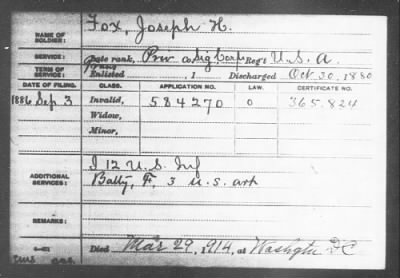 NAME OF SOLDIER: Fox, Joseph H.
SERVICE: Late rank, Priv Co. Sig. Corps Reg't U.S.A.
TERM OF SERVICE: Enlisted , 1 Discharged Oct. 30, 1880
DATE OF FILING. CLASS. APPLICATION NO. LAW. CERTIFICATE NO.
1886 Sep. 3 Invalid, 584270 O 365.824
Widow,
Minor,
I 12 U.S. Inf
ADDITIONAL SERVICES: Batty, F, 3 U.S. art
REMARKS:
Died Mar 29, 1914, at Washgtn DC